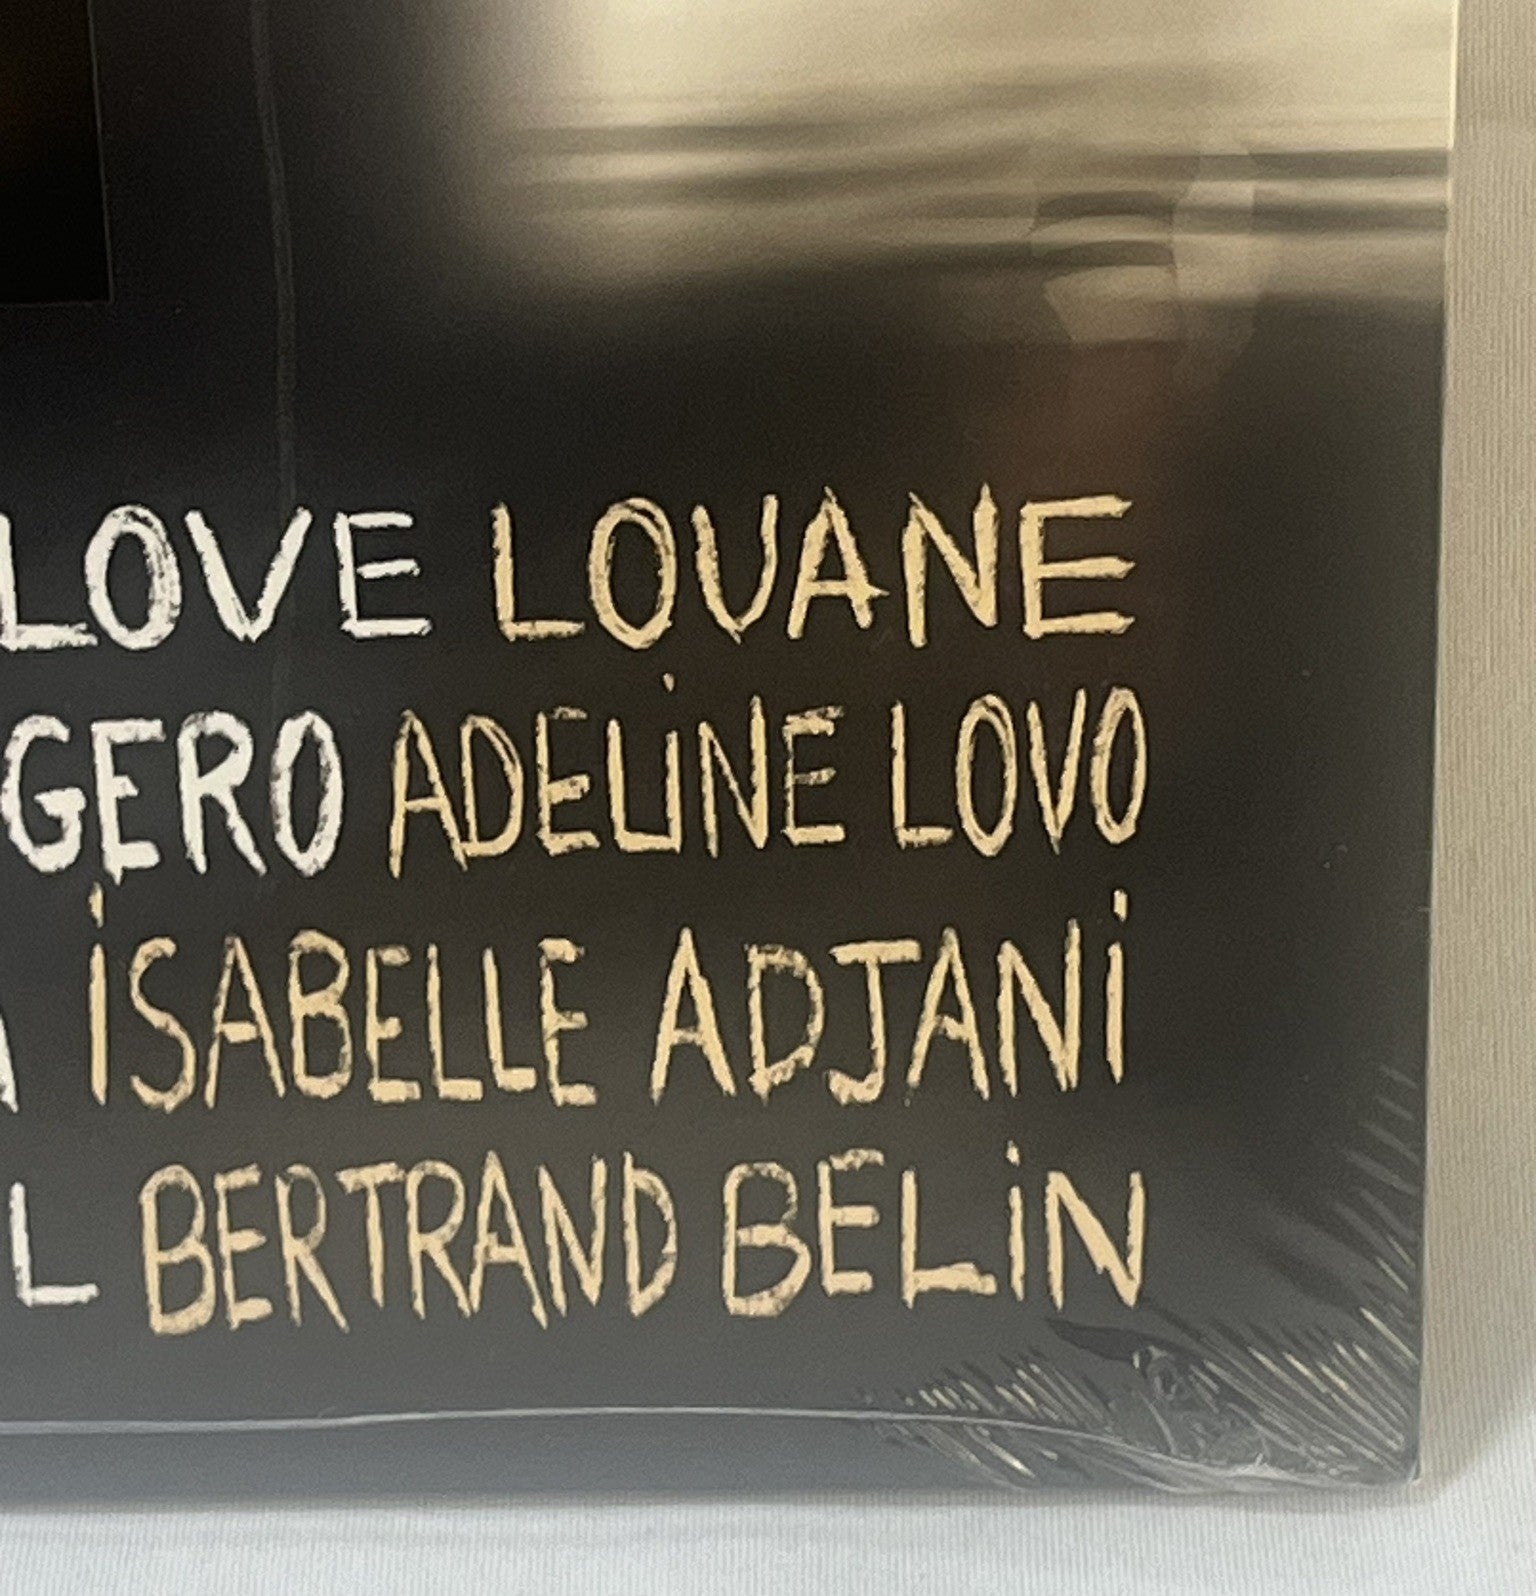 LOVE LOUANE
GERO ADELiNE LOVO
iSABELLE ADJANi
L BERTRAND BELiN